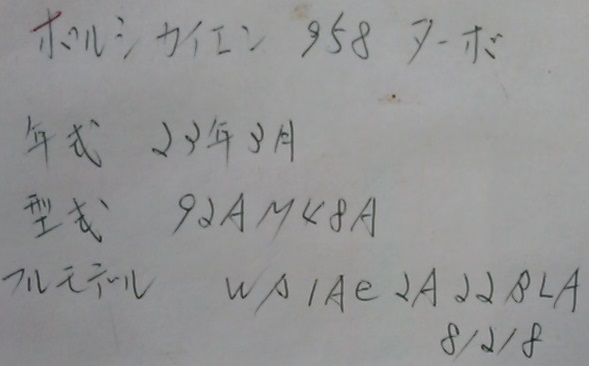 ポルシカイエン 958 ターボ
年式 23年3月
型式 92AM48A
フルモデル WP1Ae2A22BLA
8/2/8